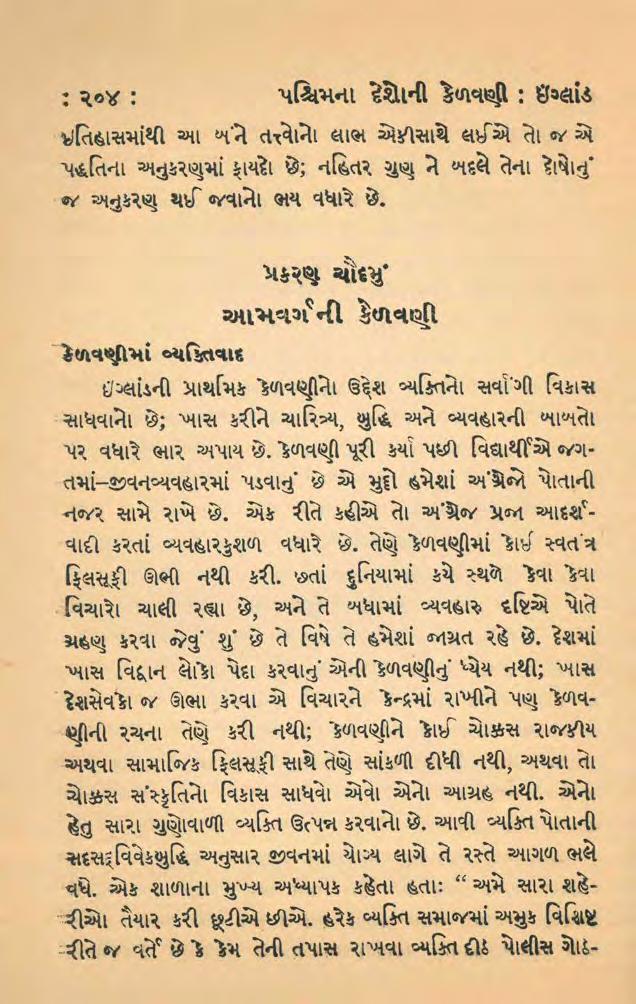 : ૨૦૪ : પશ્ચિમના દેશોની કેળવણી : ઇંગ્લાંડ
ઇતિહાસમાંથી આ બંને તત્ત્વોનો લાભ એકીસાથે લઈએ તો જ એ
પદ્ધતિના અનુકરણમાં ફાયદો છે; નહિતર ગુણ ને બદલે તેના દોષોનું
જ અનુકરણ થઈ જવાનો ભય વધારે છે.
પ્રકરણ ચૌદમું
આમવર્ગની કેળવણી
કેળવણીમાં વ્યક્તિવાદ
ઇંગ્લાંડની પ્રાથમિક કેળવણીનો ઉદ્દેશ વ્યક્તિનો સર્વાંગી વિકાસ
સાધવાનો છે; ખાસ કરીને ચારિત્ર્ય, બુદ્ધિ અને વ્યવહારની બાબતો
પર વધારે ભાર અપાય છે. કેળવણી પૂરી કર્યા પછી વિદ્યાર્થીએ જગ-
તમાં–જીવનવ્યવહારમાં પડવાનું છે એ મુદ્દો હમેશાં અંગ્રેજો પોતાની
નજર સામે રાખે છે. એક રીતે કહીએ તો અંગ્રેજ પ્રજા આદર્શ-
વાદી કરતાં વ્યવહારકુશળ વધારે છે. તેણે કેળવણીમાં કોઈ સ્વતંત્ર
ફિલસૂફી ઊભી નથી કરી. છતાં દુનિયામાં કયે સ્થળે કેવા કેવા
વિચારો ચાલી રહ્યા છે, અને તે બધામાં વ્યવહારુ દૃષ્ટિએ પોતે
ગ્રહણ કરવા જેવું શું છે તે વિષે તે હમેશાં જાગ્રત રહે છે. દેશમાં
ખાસ વિદ્વાન લોકો પેદા કરવાનું એની કેળવણીનું ધ્યેય નથી; ખાસ
દેશસેવકો જ ઊભા કરવા એ વિચારને કેન્દ્રમાં રાખીને પણ કેળવ-
ણીની રચના તેણે કરી નથી; કેળવણીને કોઈ ચોક્કસ રાજકીય
અથવા સામાજિક ફિલસૂફી સાથે તેણે સાંકળી દીધી નથી, અથવા તો
ચોક્કસ સંસ્કૃતિનો વિકાસ સાધવો એવો એનો આગ્રહ નથી. એનો
હેતુ સારા ગુણોવાળી વ્યક્તિ ઉત્પન્ન કરવાનો છે. આવી વ્યક્તિ પોતાની
સદસદ્વિવેકબુદ્ધિ અનુસાર જીવનમાં યોગ્ય લાગે તે રસ્તે આગળ ભલે
વધે. એક શાળાના મુખ્ય અધ્યાપક કહેતા હતાઃ “ અમે સારા શહે-
રીઓ તૈયાર કરી છૂટીએ છીએ. હરેક વ્યક્તિ સમાજમાં અમુક વિશિષ્ટ
રીતે જ વર્તે છે કે કેમ તેની તપાસ રાખવા વ્યક્તિ દીઠ પોલીસ ગોઠ-